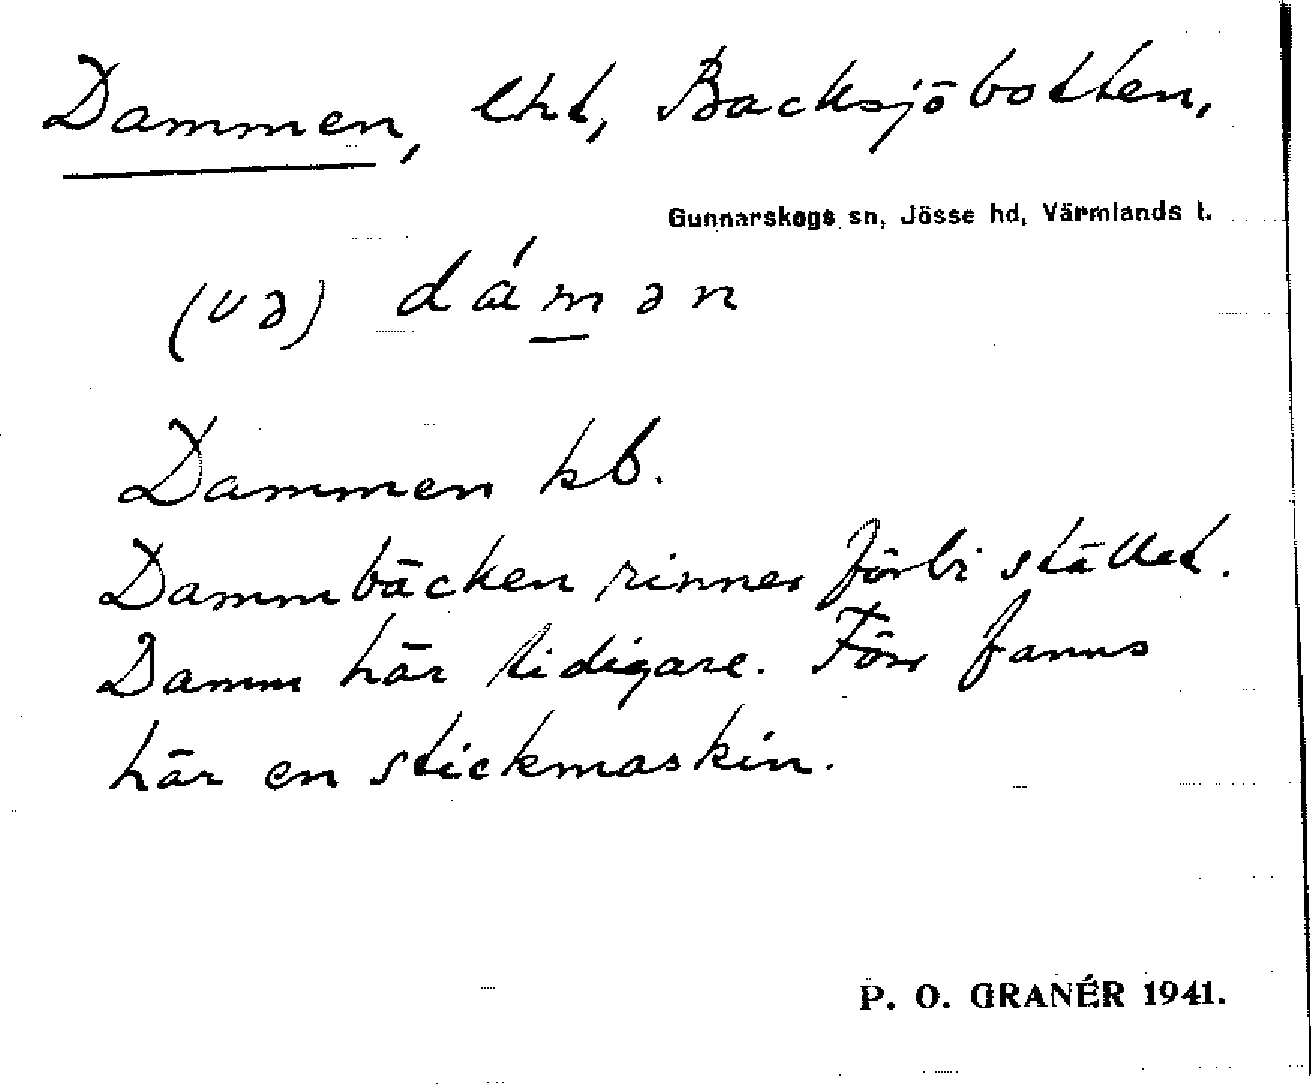 Dammen, lht, Backsjöbotten,
Gunnarskogs sn, Jösse hd, Värmlands l.
(va) dámən
Dammen kb.
Dammbäcken rinner förbi stället.
Damm här tidigare. Förr fanns
här en stickmaskin.
P. O. GRANÉR 1941.